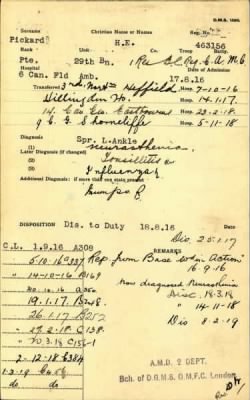 D.M.S. 1300.
Surname Christian Name or Names Reg. No.
Pickard H.E. 463156
Rank Unit Co. Troop Batty.
Pte. 29th Bn.
Hospital Date of Admission
6 Can. Fld Amb. 17.8.16
Transferred 3rd North Sheffield Hosp. 7-10-16
Hillingdon Ho. Hosp. 14.1.17.
14 Can Gen Eastbourne Hosp. 23-2-18
Shorncliffe Hosp. 5-11-18
Diagnosis Spr. L.Ankle
Later Diagnosis (if changed) neurasthenia.
Tonsillitis
Additional Diagnosis if more than one state present
Influenza
Mumps
DISPOSITION Dis. to Duty 18.8.16
Dis 25.1.17
C.L. 1.9.16 A308 REMARKS
5.10.16 A337 Rep. from Base Wd in Action
16-9-16
14-10-16 B169
now diagnosed Neurasthenia
20.10.16 A350
Disc. 18.3.18
19.1.17. B248.
14-11-18
26.1.17 B252
Dis 8-2-19
27.2.18 C138.
20.3.18 C156-1
7-12-18 C384
1-3-19
do do
A.M.D. 2 DEPT.
Bch. of D.G.M.S. O.M.F.C. London.